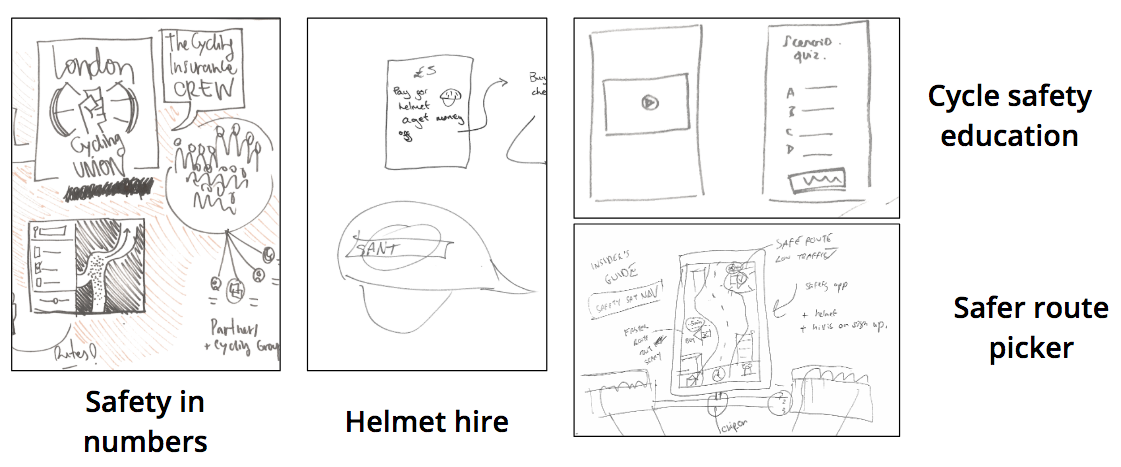 London
Cycling
UNION
the Cycling
Insurance
CREW
Partners
+ Cycling Group
Routes?
Safety in
numbers
£5
Pay for
helmet
& get money
off
Buy
che
SANT
Helmet hire
Scenario
quiz.
A
B
C
D
Cycle safety
education
INSIDER'S
GUIDE
SAFETY SAT NAV
SAFE ROUTE
LOW TRAFFIC
SAFETY app
+ helmet
+ hi vis on sign up.
ROUTE
clip on
Safer route
picker